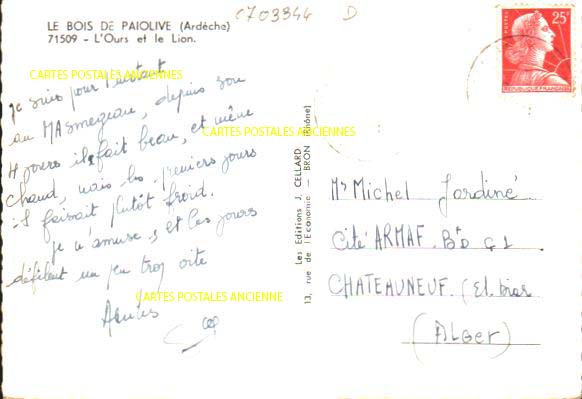 C703344 D
LE BOIS DE PAIOLIVE (Ardèche)
71509 - L'Ours et le Lion.
25F
POSTES
REPUBLIQUE FRANÇAISE
CARTES POSTALES ANCIENNES
Je suis pour l'instant
au MASmejean, depuis
4 jours il fait beau, et même
CARTES POSTALES ANCIENNES
chaud, mais les premiers jours
il faisait plutôt froid.
je m'amuse, et les jours
défilent un peu trop vite
CARTES POSTALES ANCIENNE
Les Editions J. CELLARD
13, rue de l'Economie — BRON (Rhône)
Mr Michel Jardiné
Cité ARMAF. BD
CHATEAUNEUF. (El. biar
(ALGER)